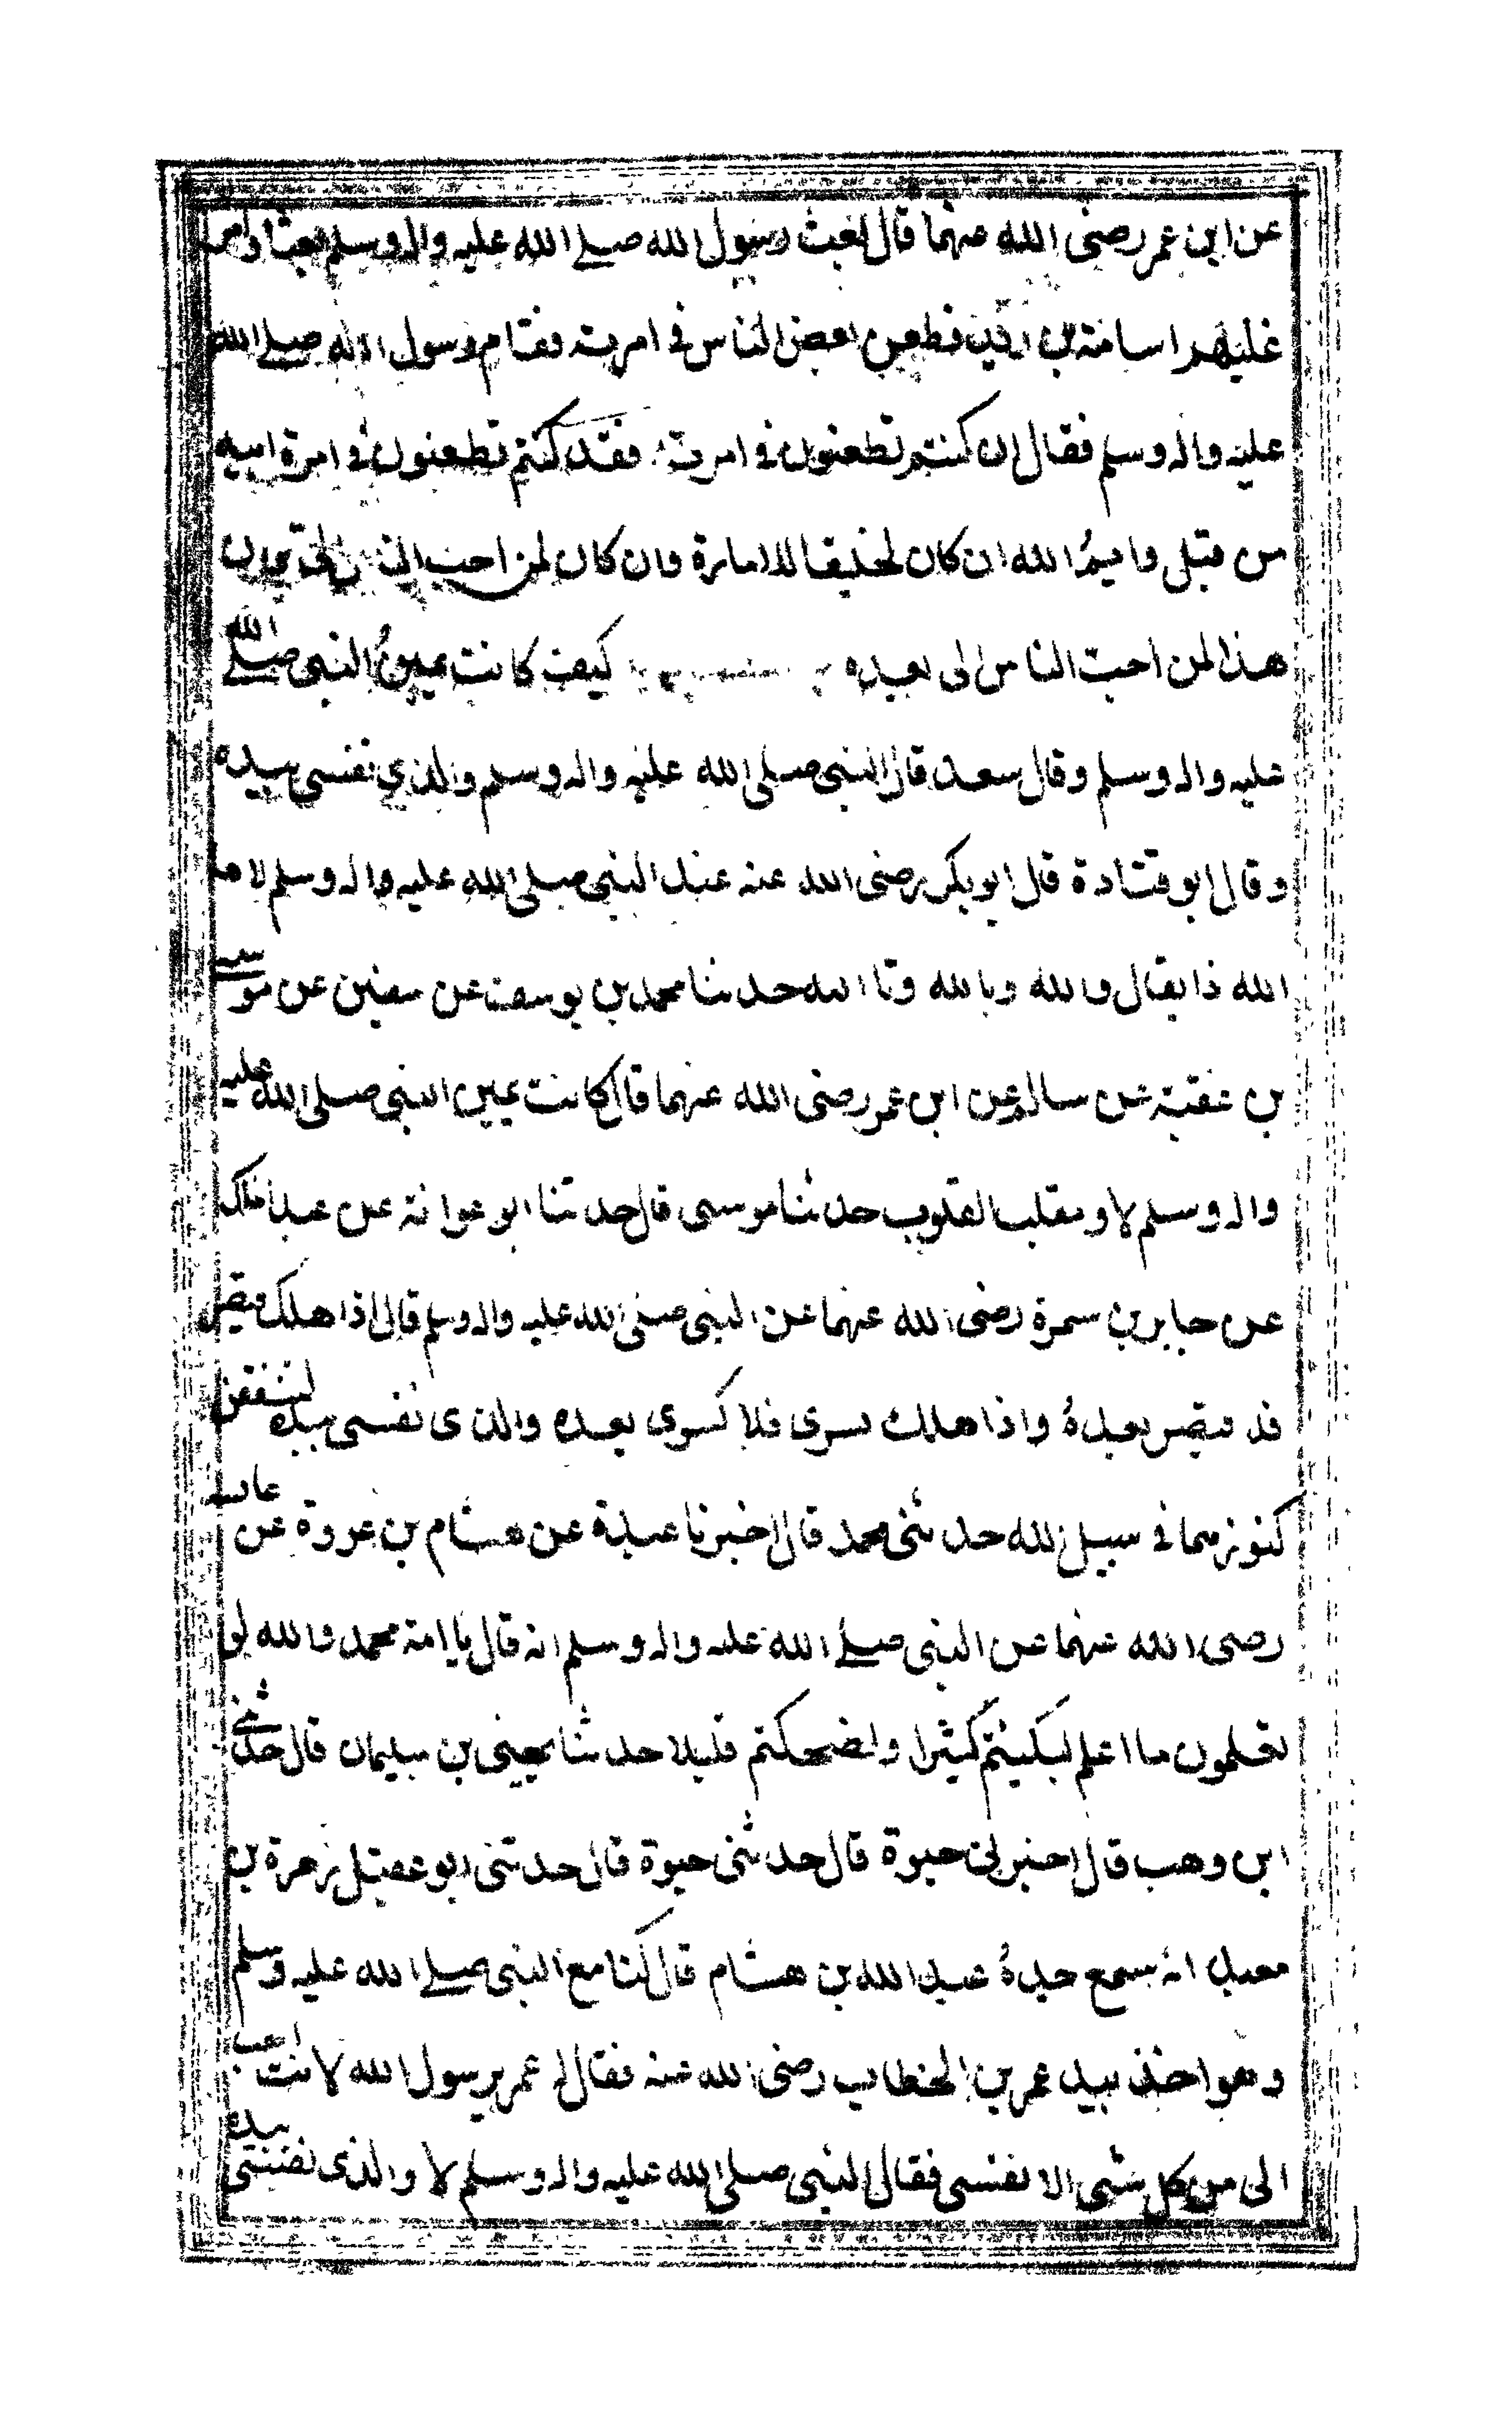 عن ابن عمر رضى الله عنهما قال بعث رسول الله صلى الله عليه واله وسلم بعثا وامر
عليهم اسامة بن زيد فطعن بعض الناس فى امرته فقام رسول الله صلى الله
عليه واله وسلم فقال ان كنتم تطعنون فى امرته فقد كنتم تطعنون فى امرة ابيه
من قبل وايمُ الله ان كان لخليقا للامارة وان كان لمن احب الناس الى وان
هذا لمن احب الناس الى بعده كيف كانت يمينُ النبى صلى الله
عليه واله وسلم وقال سعد قال النبى صلى الله عليه واله وسلم والذي نفسى بيده
وقال ابو قتادة قال ابو بكر رضى الله عنه عند النبى صلى الله عليه واله وسلم لاها
الله ذا يقال والله وبالله وتا الله حدثنا محمد بن يوسف عن سفين عن موسى
بن عقبة عن سالم عن ابن عمر رضى الله عنهما قال كانت يمين النبى صلى الله عليه
واله وسلم لا ومقلب القلوب حدثنا موسى قال حدثنا ابو عوانة عن عبد الملك
عن جابر بن سمرة رضى الله عنهما عن النبى صلى الله عليه واله وسلم قال اذا هلك قيصر
فد قيصر بعدهُ واذا هلك كسرى فلا كسرى بعده والذى نفسى بيده لتنفقن
كنوزهما فى سبيل الله حدثنى محمد قال اخبرنا عبدة عن هشام بن عروة عن عايشه
رضى الله عنهما عن النبى صلى الله عليه واله وسلم انه قال يا امة محمد والله لو
تعلمون ما اعلم لبكيتم كثيرا ولضحكتم قليلا حدثنا يحيى بن سليمان قال حدثنى
ابن وهب قال اخبرنى حيوة قال حدثنى حيوة قال حدثنى ابو عقيل زهرة بن
معبد انه سمع جدهُ عبد الله بن هشام قال كنا مع النبى صلى الله عليه وسلم
وهو اخذ بيد عمر بن الخطاب رضى الله عنه فقال له عمر يرسول الله لانت احب
الى من كل شى الا نفسى فقال النبى صلى الله عليه واله وسلم لا والذى نفسى بيده